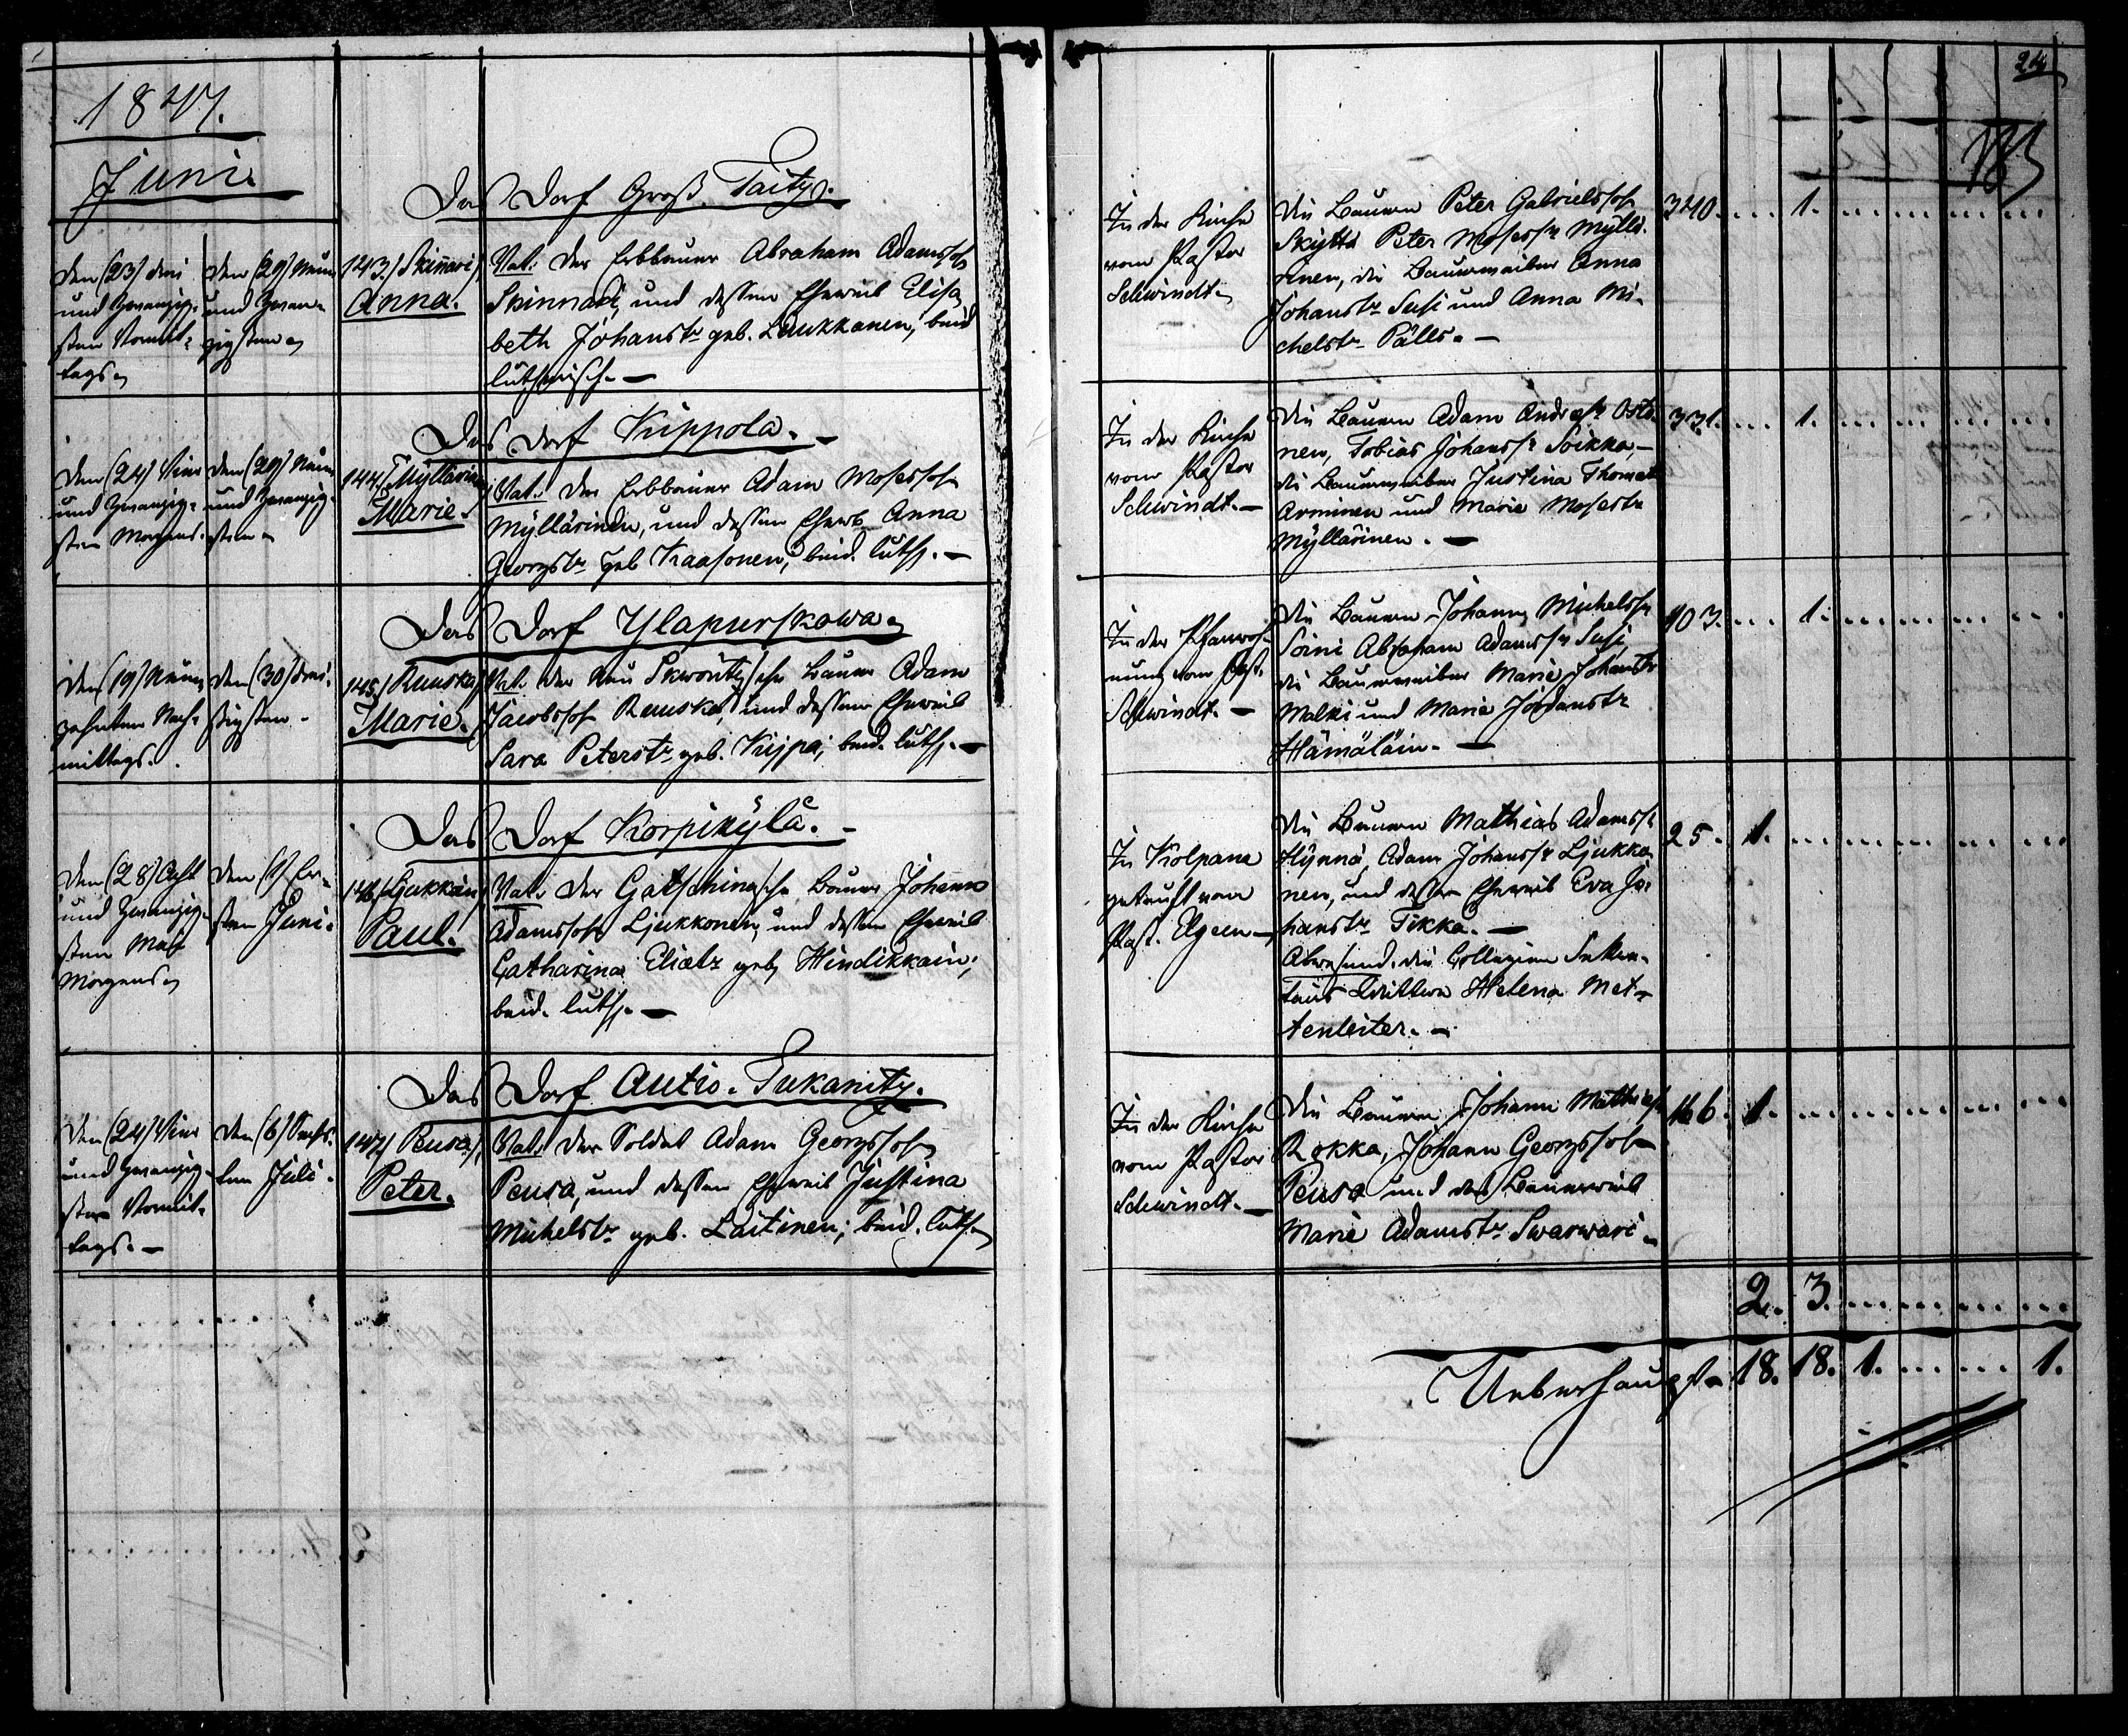 24
185
1847.
Juni.
Das Dorf Groß Taitz.
Den (23) drei
und zwanzig-
sten Vormit-
tags
den (29) neun
und zwan-
zigsten
143./ Skinnari/
Anna.
Vat. der Erbbauer Abraham Adamssohn
Skinnari, und dessen Eheweib Elisa
beth Johanstr geb. Laukkanen, beid
lutherisch. —
In der Kirche
vom Pastor
Schwindt
Die Bauern Peter Gabrielssohn
Skyttä Peter Mosessn Myllä-
rinen, die Bauerweiber Anna
Johanstr Susi und Anna Mi-
chelstr Pälls. —
340. 1.
Das Dorf Kuppola. -
Den (24) Vier
und zwanzig-
sten Morgens.
den (29) neun
und zwanzig-
sten
144/ Myllärinen
Marie.
Vat. der Erbbauer Adam Mosessohn
Myllärinen, und dessen Ehewb Anna
Georgstr geb Kaasonen, beid. luth. —
In der Kirche
vom Pastor
Schwindt. —
Die Bauern Adam Andressn Osto-
nen, Tobias Johanssn Soikka, —
die Bauerweiber Justina Thomastr
Arminen und Marie Mosestr
Myllärinen. —
331. 1.
Das Dorf Ylapurskowa
Den (19) Neun
zehnten Nach-
mittags.
den (30) drei-
ßigsten -
145/ Ruuska/
Marie.
Vat. der Neu Skworitzsche Bauer Adam
Jacobssohn Ruuska, und dessen Eheweib
Sara Peterstr geb. Kujpa, beid. luth. —
In der Pfarrwoh-
nung vom Past.
Schwindt. —
Die Bauern Johann Michelssn
Soini Abraham Adamssn Susi
die Bauerweiber Marie Johanstr
Malki und Marie Jordanstr
Hämäläin. —
403. 1.
Das Dorf Korpikylä. -
Den (28) Acht
und zwanzig-
sten Mai
Morgens
den (1) Er-
sten Juni.
146/ Ljukkain/
Paul.
Vat. der Gatschinasche Bauer Johann
Adamssohn Ljukkonen, und dessen Eheweib
Catharina Eliastr geb Hindikkain;
beid. luth. —
In Kolpana
getauft vom
Past. Elgeen —
Die Bauern Mathias Adamssn
Hynnä, Adam Johanssn Ljukko-
nen, und dessen Eheweib Eva Jo-
hanstr Tikka. —
Abwesend. die Collegien Sekre-
tairs Wittwe Helena Met-
tenleiter. —
25. 1.
Das Dorf Autio-Tukanitz.
Den (24) Vier
und zwanzig-
sten Vormit-
tags. —
den (6) Sechs-
ten Juli.
147/ Peusa/
Peter.
Vat. der Soldat Adam Georgssohn
Peusa, und dessen Eheweib Justina
Michelstr geb. Laitinen; beid. luth.
In der Kirche
vom Pastor
Schwindt. —
Die Bauern Johann Mathiassn
Rokka, Johann Georgssohn
Peusa und das Bauerweib
Marie Adamstr Swarwari.
166. 1.
2. 3.
Ueberhaupt 18. 18. 1. 1.